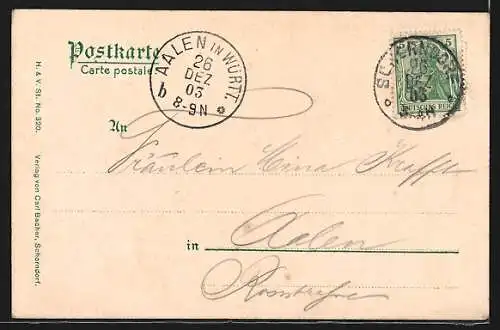 Postkarte
Carte postale
AALEN IN WÜRTT.
26
DEZ
03
8-9N
b
5
26
DEZ
03
DEUTSCHES REICH
An
Fräulein Lina Krafft
in Aalen
H. & V. St. No. 320.
Verlag von Carl Bacher, Schorndorf.